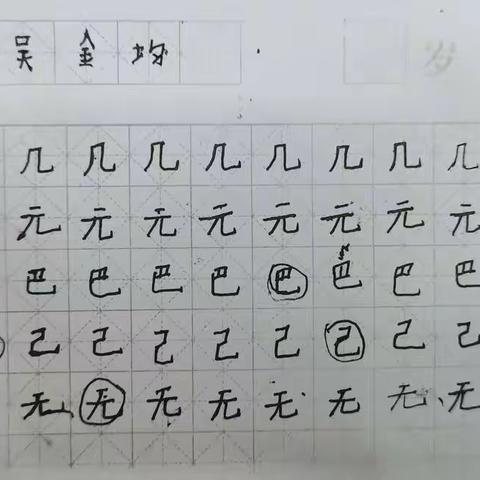 吴金均
岁
几几几几几几几几
元元元元元元元元
巴巴巴巴巴巴巴巴
己己己己己己己己
无无无无无无无无